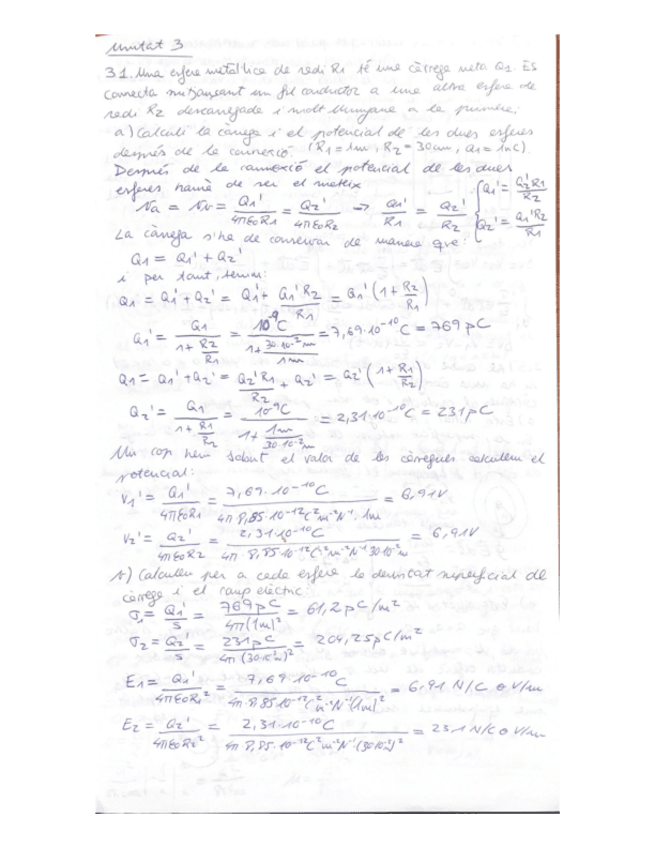 Unitat 3
3.1. Una esfera metàl·lica de radi R1 té una càrrega neta Q1. Es
connecta mitjançant un fil conductor a una altra esfera de
radi R2 descarregada i molt llunyana a la primera:
a) Calculi la càrrega i el potencial de les dues esferes
després de la connexió. (R1 = 1m, R2 = 30cm, Q1 = 1nC).
Després de la connexió el potencial de les dues
esferes haurà de ser el mateix
Va = Vb = Q1'/4πε0R1 = Q2'/4πε0R2 → Q1'/R1 = Q2'/R2 { Q1' = Q2'R1/R2
Q2' = Q1'R2/R1
La càrrega s'ha de conservar de manera que:
Q1 = Q1' + Q2'
i per tant, tenim:
Q1 = Q1' + Q2' = Q1' + Q1'R2/R1 = Q1' (1 + R2/R1)
Q1' = Q1/(1 + R2/R1) = 10⁻⁹C/(1 + 30·10⁻²m/1m) = 7,69·10⁻¹⁰C = 769 pC
Q1 = Q1' + Q2' = Q2'R1/R2 + Q2' = Q2' (1 + R1/R2)
Q2' = Q1/(1 + R1/R2) = 10⁻⁹C/(1 + 1m/30·10⁻²m) = 2,31·10⁻¹⁰C = 231 pC
Un cop hem sabut el valor de les càrregues calculem el
potencial:
V1' = Q1'/4πε0R1 = 7,69·10⁻¹⁰C/4π·8,85·10⁻¹²C²m⁻²N⁻¹·1m = 6,91V
V2' = Q2'/4πε0R2 = 2,31·10⁻¹⁰C/4π·8,85·10⁻¹²C²m⁻²N⁻¹30·10⁻²m = 6,91V
b) Calculeu per a cada esfera la densitat superficial de
càrrega i el camp elèctric
σ1 = Q1'/S = 769pC/4π(1m)² = 61,2 pC/m²
σ2 = Q2'/S = 231pC/4π(30·10⁻²m)² = 204,25pC/m²
E1 = Q1'/4πε0R1² = 7,69·10⁻¹⁰C/4π·8,85·10⁻¹²C²m⁻²N⁻¹(1m)² = 6,91 N/C o V/m
E2 = Q2'/4πε0R2² = 2,31·10⁻¹⁰C/4π·8,85·10⁻¹²C²m⁻²N⁻¹·(30·10⁻²)² = 23,1 N/C o V/m